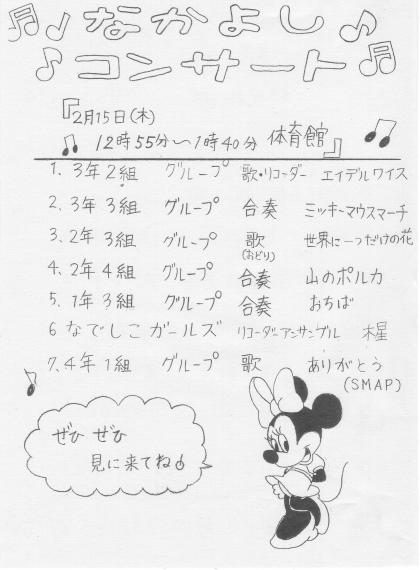 なかよし
コンサート
『2月15日(木)
12時55分～1時40分 体育館』
1. 3年2組 グループ 歌・リコーダー エイデルワイス
2. 3年3組 グループ 合奏 ミッキーマウスマーチ
3. 2年3組 グループ 歌(おどり) 世界に一つだけの花
4. 2年4組 グループ 合奏 山のポルカ
5. 1年3組 グループ 合奏 おちば
6 なでしこガールズ リコーダーアンサンブル 木星
7. 4年1組 グループ 歌 ありがとう
(SMAP)
ぜひ ぜひ
見に来てね